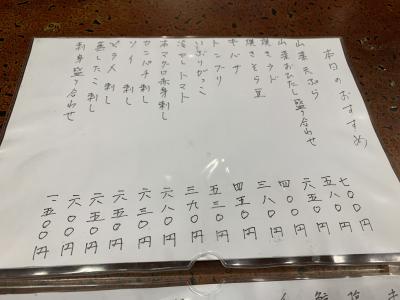 本日のおすすめ
山菜天ぷら 七〇〇円
山菜おひたし盛り合わせ 五八〇円
焼きウド 六五〇円
焼きそら豆 四〇〇円
ギバサ 三八〇円
トンブリ 四五〇円
いぶりがっこ 五三〇円
冷やしトマト 三九〇円
本マグロ赤身刺し 六八〇円
カンパチ刺し 六三〇円
ソイ刺し 六五〇円
ヒラメ刺し 六五〇円
蒸しだこ刺し 六〇〇円
刺身盛り合わせ 一、五〇〇円